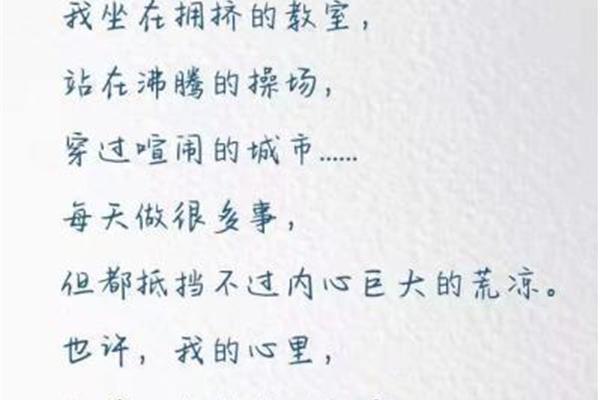 我坐在拥挤的教室，
站在沸腾的操场，
穿过喧闹的城市……
每天做很多事，
但都抵挡不过内心巨大的荒凉。
也许，我的心里，